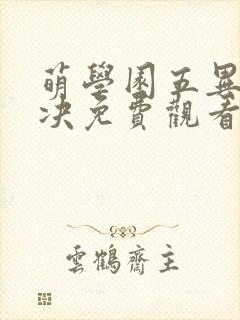 萌學園五異
決免費觀看
雲鶴齋主